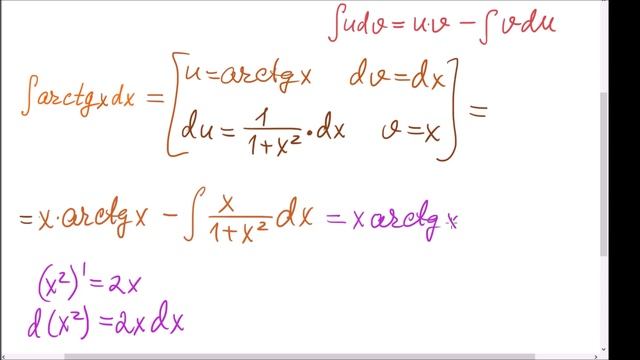 ∫udv = u·v − ∫vdu
∫arctgxdx = [u = arctgx dv = dx
du = 1/(1+x²)·dx v = x] =
= x·arctgx − ∫ x/(1+x²) dx = x arctg x
(x²)' = 2x
d(x²) = 2x dx